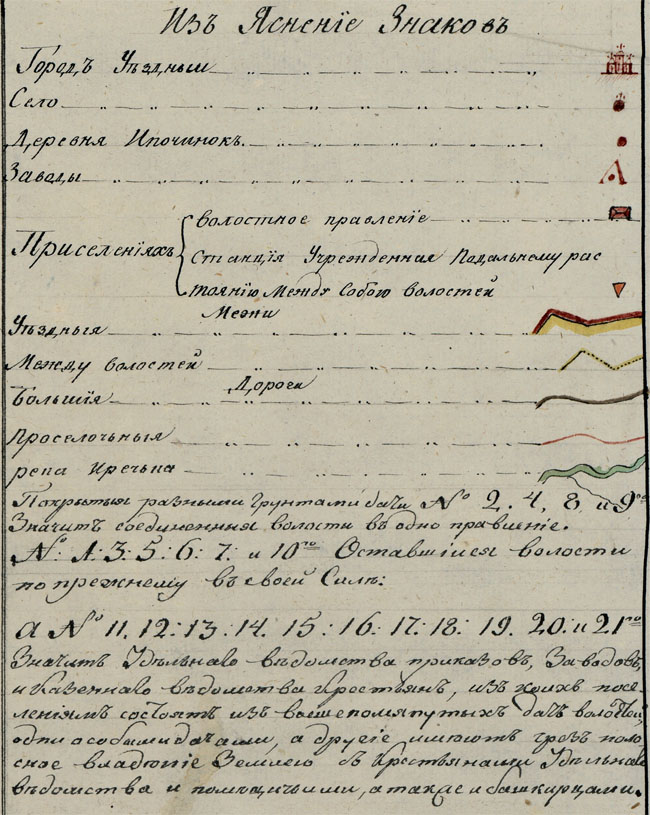 Изъ Ясненіе Знаковъ
Городъ Уѣздный
Село
Деревня Ипочинокъ
Заводы
Волостное правленіе
Приселеніяхъ
Станція Учрежденная Подальнему рас
тоянію Между Собою волостей
Межи
Уѣздныя
Между волостей
Дороги
Большія
Проселочныя
река Иречька
Покрытыя разными грунтами дачи № 2. 4, 8. и 9го
Значитъ соединенныя волости въ одно правленіе.
№: 1: 3: 5: 6: 7: и 10го Оставшіися волости
по прежнему въ своей Силѣ:
а № 11. 12: 13: 14. 15: 16: 17: 18: 19. 20: и 21го
Значитъ Удѣльнаго вѣдомства приказовъ, Заводовъ,
и Казеннаго вѣдомства Крестьянъ, изъ коихъ посе-
леніямъ состоятъ изъ вышепомянутыхъ дачъ волостей,
одни особыми дачами, а другіе имеютъ чрезъ поло
сное владеніе Землею съ Крестьянами Удѣльнаго
вѣдомства и помѣщичьими, а также и башкирцами.